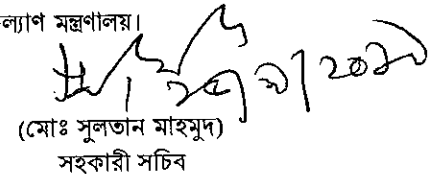 ল্যাণ মন্ত্রণালয়।
(মোঃ সুলতান মাহমুদ)
সহকারী সচিব